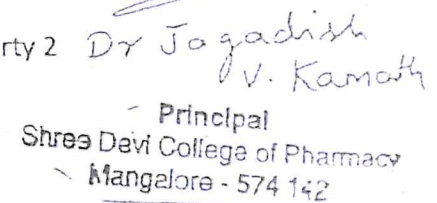 rty 2 Dr Jagadish
V. Kamath
Principal
Shree Devi College of Pharmacy
Mangalore - 574 142